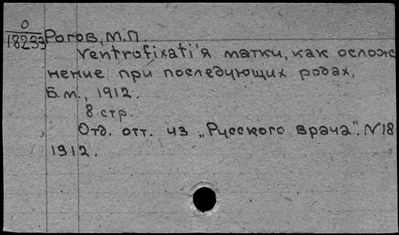 О
18233
Рогов, М.П.
Ventrofixati'я матки, как ослож
нение при последующих родах.
Б.м., 1912.
8 стр.
Отд. отт. из „Русского врача". №18
1912.